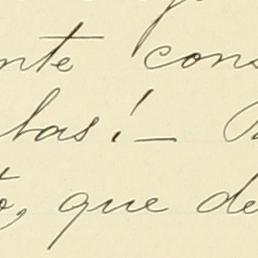 nte cons
bas! —
o, que de